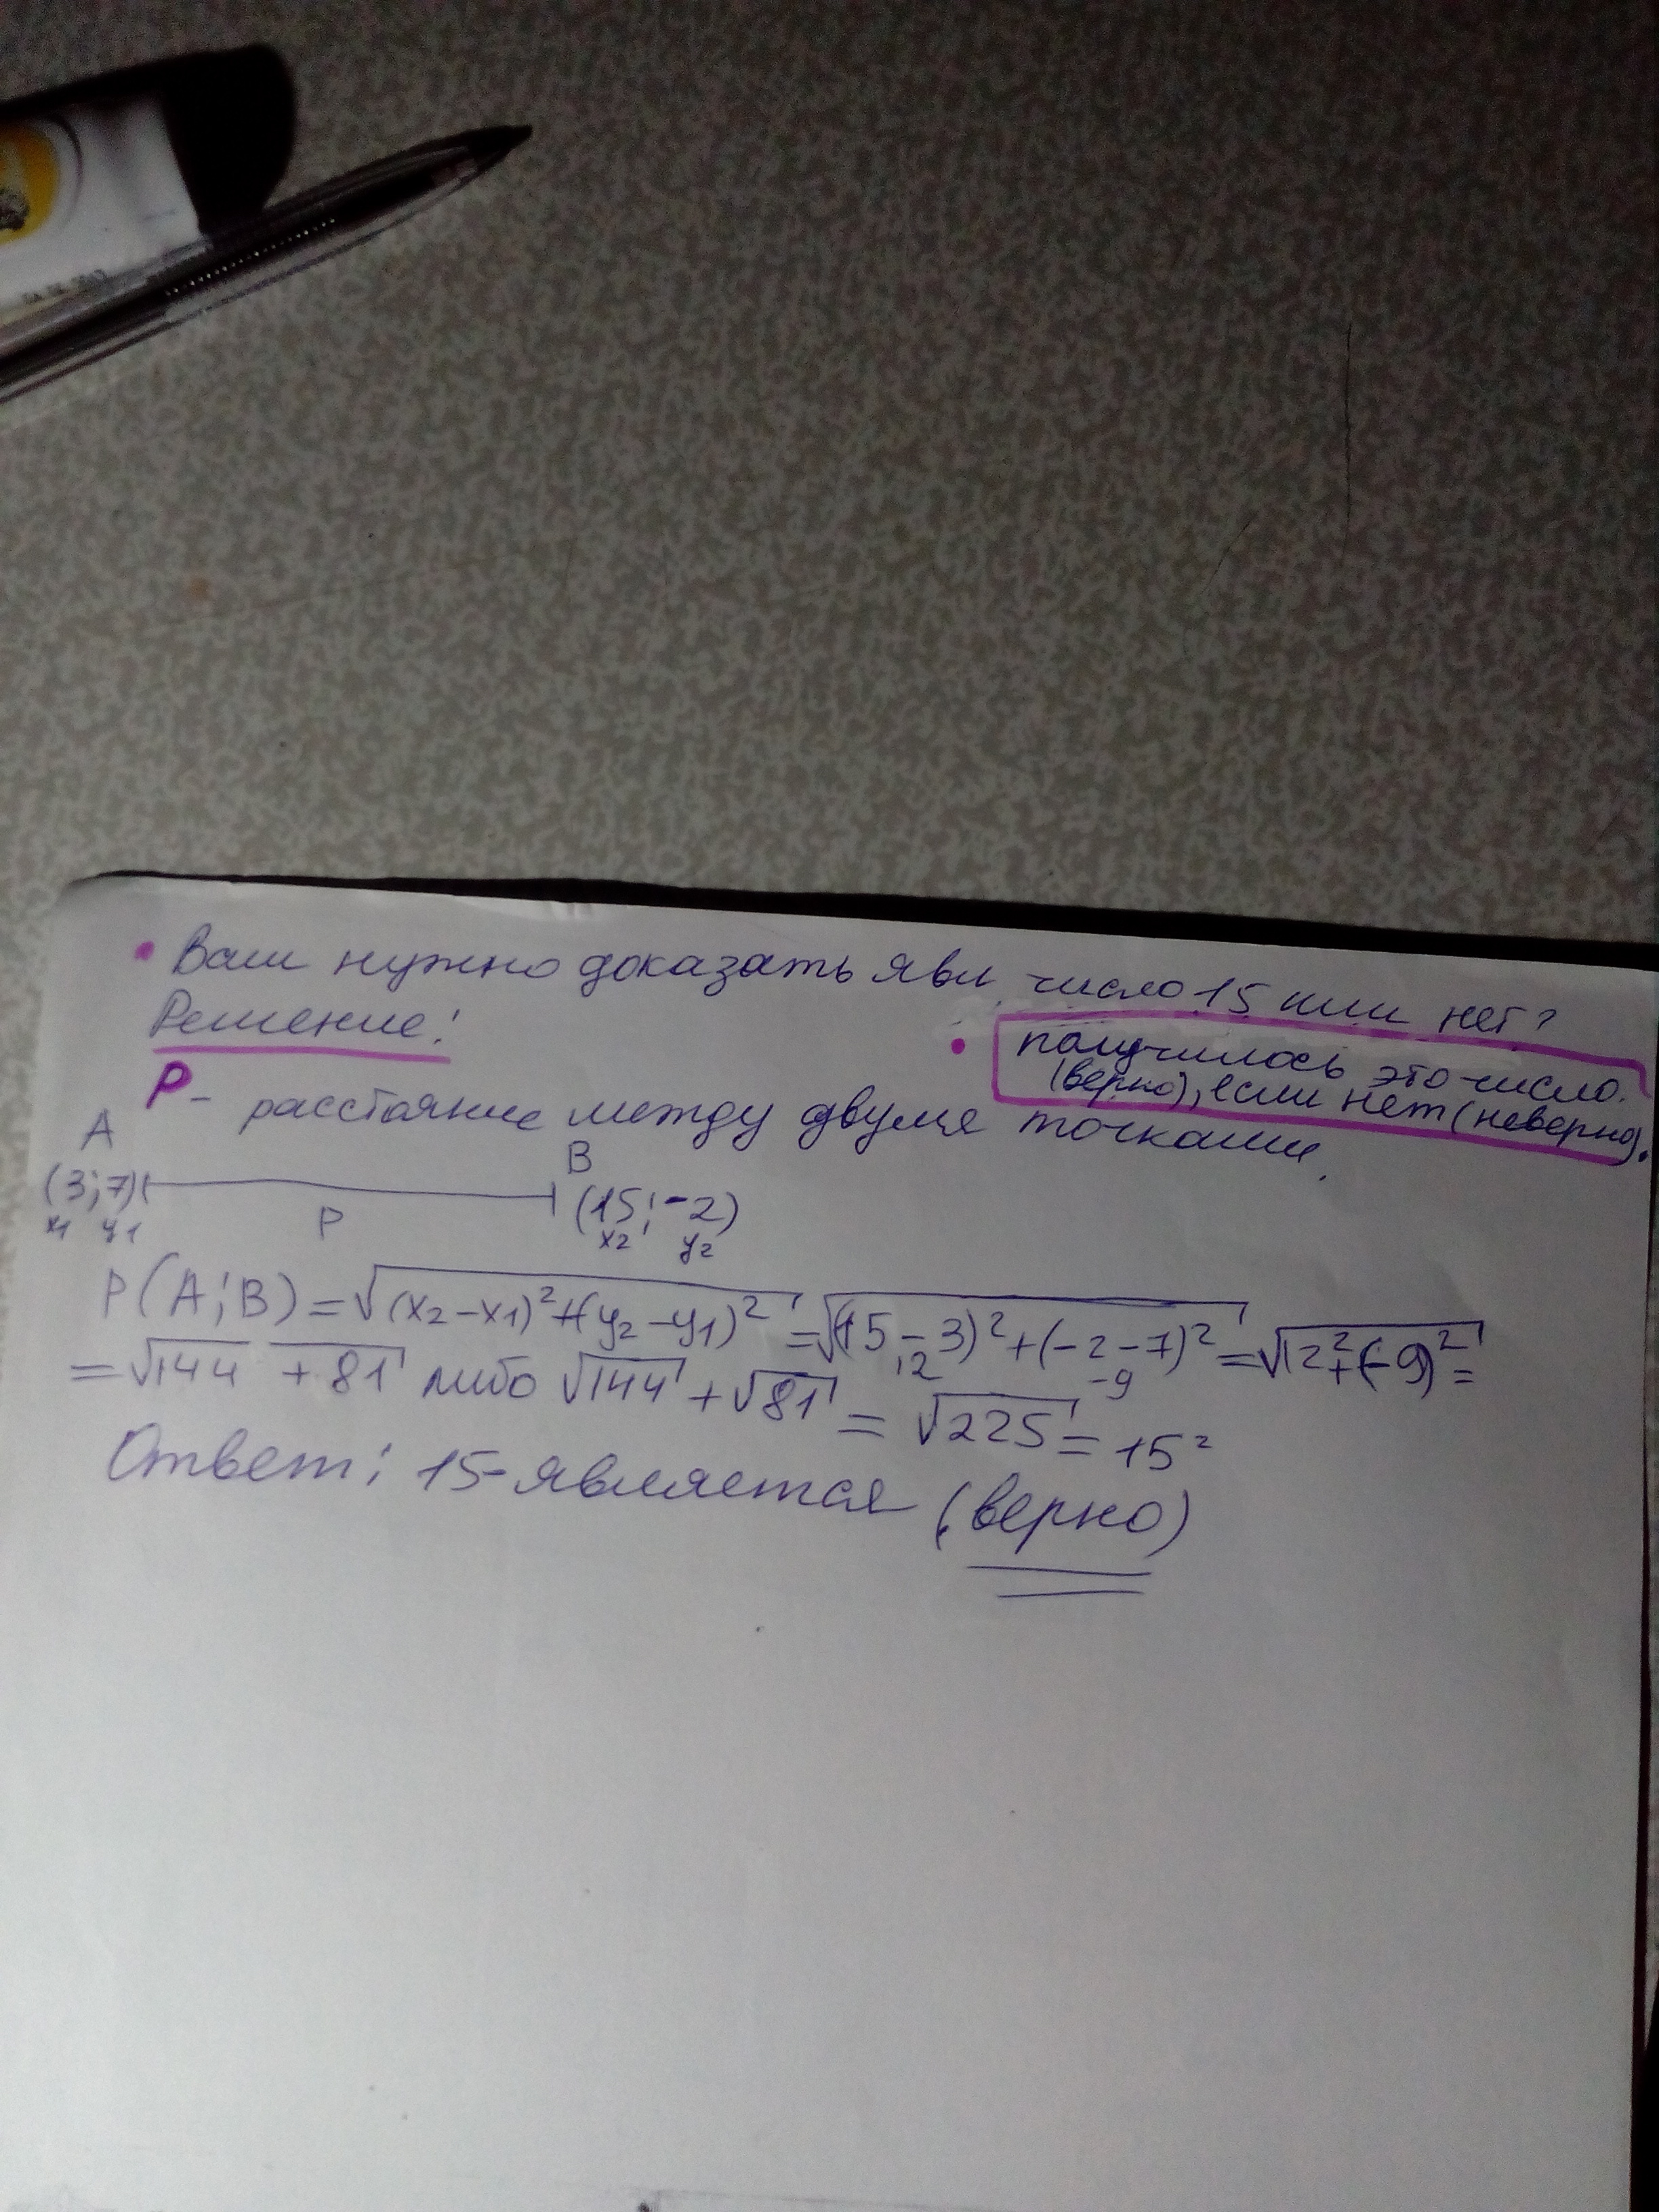 • Вам нужно доказать явл. число 15 или нет?
Решение:
• получилось это число.
(верно), если нет (неверно).
P - расстояние между двумя точками.
A
B
(3;7)
(15;-2)
x1 y1
P
x2 y2
P(A;B)=√(x2-x1)²+(y2-y1)² =√(15-3)²+(-2-7)² =√12²+(-9)² =
12
-9
=√144 +81 либо √144 + √81 = √225 = 15²
Ответ: 15-является (верно)